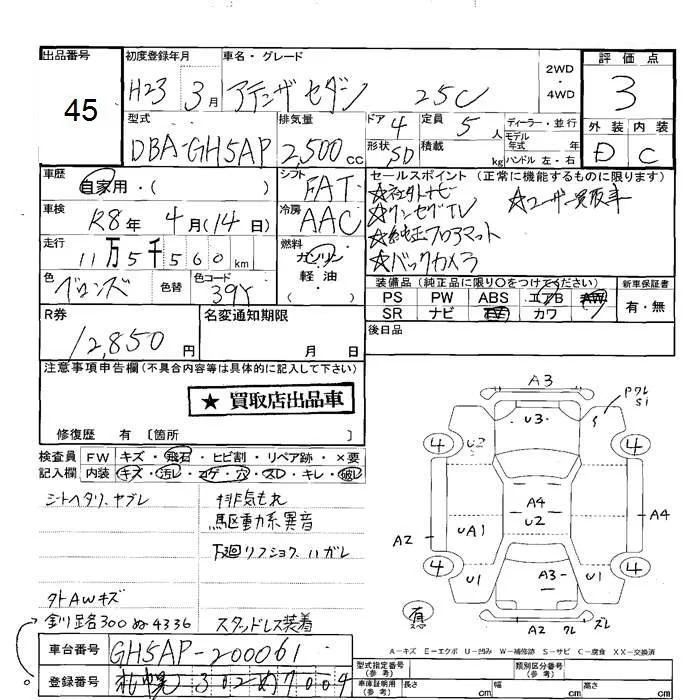 出品番号 初度登録年月 車名・グレード 評価点
45
H23 3月 アテンザ セダン 25C 2WD・4WD 3
型式 排気量 ドア 4 定員 5人 ディーラー・並行 外装 内装
DBA-GH5AP 2,500cc 形状 SD 積載 kg モデル年式 年 ハンドル 左・右 D C
車歴 自家用・( ) シフト FAT
車検 R8年 4月(14日) 冷房 AAC
走行 11万5千560km 燃料 ガソリン 軽油 ( )
色 ブロンズ 色替 色コード 39Y
セールスポイント(正常に機能するものに限ります)
☆社外ナビ ☆ユーザー買取車
☆ワンセグTV
☆純正フロアマット
☆バックカメラ
装備品(純正品に限り○をつけてください) 新車保証書
PS PW ABS エアB AW 有・無
SR ナビ カワ
後日品
R券 12,850円 名変通知期限 月 日
注意事項申告欄(不具合内容等は具体的に記入して下さい)
★ 買取店出品車
修復歴 有 〔箇所 〕
検査員記入欄 FW キズ・飛石・ヒビ割・リペア跡・×要
内装 キズ・汚レ・コゲ・穴・スレ・キレ・破レ
シートヘタリ、ヤブレ 排気もれ
駆動力系異音
下廻リフショク、ハガレ
外AWキズ
釧路300ぬ4336 スタッドレス装着
車台番号 GH5AP-200061
登録番号 札幌302ぬ7004
A3
U3
U2
ワレ
S1
4 4
A4
U2
A2 UA1 A4
4 4
U1 A3 U1
有
A2 ワレ ズレ
A-キズ E-エクボ U-凹み W-補修跡 S-サビ C-腐食 XX-交換済
型式指定番号(参考) 類別区分番号(参考)
車庫証明用(参考) 長さ cm 幅 cm 高さ cm